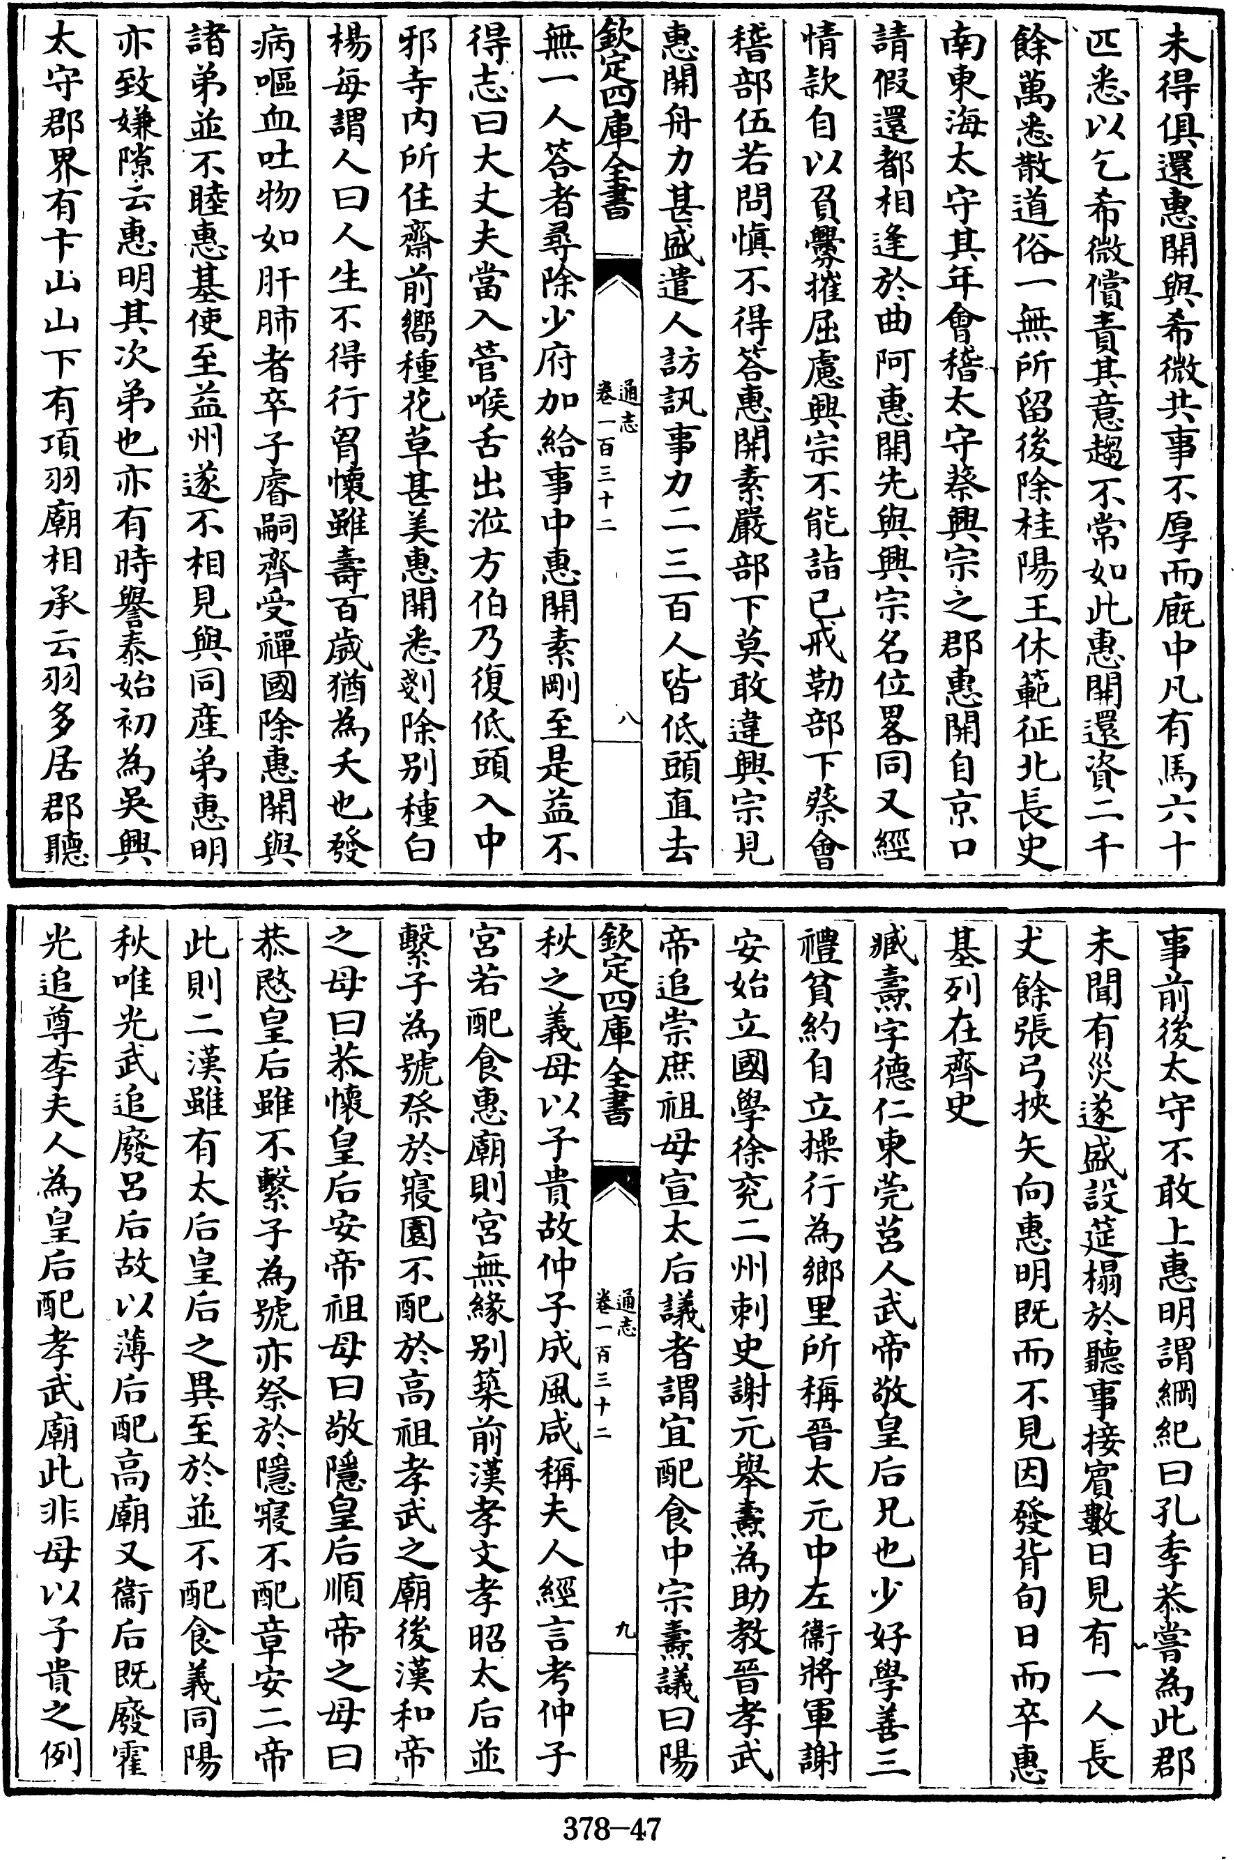 未得俱還惠開與希微共事不厚而廐中凡有馬六十
匹悉以乞希微償責其意趨不常如此惠開還資二千
餘萬悉散道俗一無所留後除桂陽王休範征北長史
南東海太守其年會稽太守蔡興宗之郡惠開自京口
請假還都相逢於曲阿惠開先與興宗名位畧同又經
情款自以負釁摧屈慮興宗不能詣已戒勒部下蔡會
稽部伍若問慎不得答惠開素嚴部下莫敢違興宗見
惠開舟力甚盛遣人訪訊事力二三百人皆低頭直去
欽定四庫全書
通志
卷一百三十二
八
無一人答者尋除少府加給事中惠開素剛至是益不
得志曰大丈夫當入管喉舌出涖方伯乃復低頭入中
邪寺内所住齋前嚮種花草甚美惠開悉剗除别種白
楊每謂人曰人生不得行胷懷雖壽百歲猶為夭也發
病嘔血吐物如肝肺者卒子睿嗣齊受禪國除惠開與
諸弟並不睦惠基使至益州遂不相見與同產弟惠明
亦致嫌隙云惠明其次弟也亦有時譽泰始初為吳興
太守郡界有卞山山下有項羽廟相承云羽多居郡聽
事前後太守不敢上惠明謂綱紀曰孔季恭嘗為此郡
未聞有災遂盛設筵榻於聽事接賔數日見有一人長
丈餘張弓挾矢向惠明既而不見因發背旬日而卒惠
基列在齊史
臧燾字德仁東莞莒人武帝敬皇后兄也少好學善三
禮貧約自立操行為鄉里所稱晉太元中左衛將軍謝
安始立國學徐兖二州刺史謝元舉燾為助教晉孝武
帝追崇庶祖母宣太后議者謂宜配食中宗燾議曰陽
欽定四庫全書
通志
卷一百三十二
九
秋之義母以子貴故仲子成風咸稱夫人經言考仲子
宮若配食惠廟則宮無緣别築前漢孝文孝昭太后並
繫子為號祭於寢園不配於高祖孝武之廟後漢和帝
之母曰恭懷皇后安帝祖母曰敬隱皇后順帝之母曰
恭愍皇后雖不繫子為號亦祭於隱寢不配章安二帝
此則二漢雖有太后皇后之異至於並不配食義同陽
秋唯光武追廢呂后故以薄后配高廟又衞后既廢霍
光追尊李夫人為皇后配孝武廟此非母以子貴之例
378-47